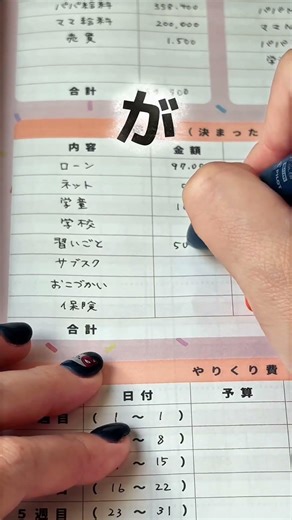 パパ給料 338.400
ママ給料 200,000
売買 1.500
合計
が
(決まった
内容 金額
ローン 99.00
ネット
学童 1.
学校
習いごと 50
サブスク
おこづかい
保険
合計
やりくり費
日付 予算
週目 (1〜1)
〜8)
〜15)
(16〜22)
5週目 (23〜31)